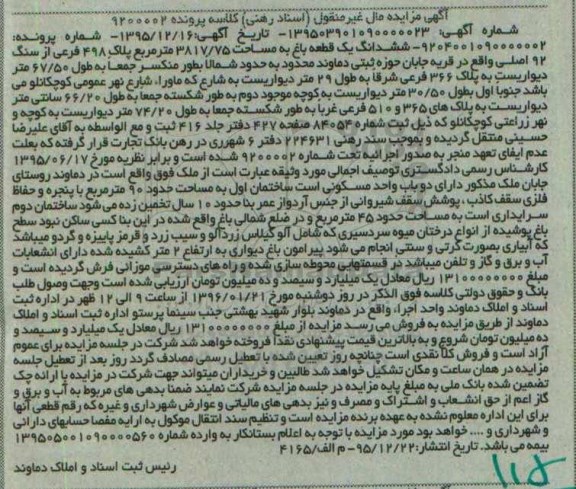 آگهی مزایده مال غیرمنقول (اسناد رهنی) کلاسه پرونده ۹۲۰۰۰۰۲
شماره آگهی: ۱۳۹۵۰۳۹۰۱۰۹۰۰۰۰۰۲۳- تاریخ آگهی: ۱۳۹۵/۱۲/۱۶- شماره پرونده:
۹۲۰۴۰۰۱۰۹۰۰۰۰۰۰۲- ششدانگ یک قطعه باغ به مساحت ۳۸۱۷/۷۵ مترمربع پلاک ۴۹۸ فرعی از سنگ
۹۲ اصلی واقع در قریه جابان حوزه ثبتی دماوند محدود به حدود شمالا بطور منکسر جمعا به طول ۶۷/۵۰ متر
دیواریست به پلاک ۳۶۶ فرعی شرقا به طول ۲۹ متر دیواریست به شارع که ماورا، شارع نهر عمومی کوچکانلو می
باشد جنوبا اول بطول ۳۰/۵۰ متر دیواریست به کوچه موجود دوم به طور شکسته جمعا به طول ۶۶/۲۰ سانتی متر
دیواریست به پلاک های ۳۶۵ و ۵۱۰ فرعی غربا به طور شکسته جمعا به طول ۷۴/۲۰ متر دیواریست به کوچه و
نهر زراعتی کوچکانلو که ذیل ثبت شماره ۸۴۰۵۴ صفحه ۴۲۷ دفتر جلد ۴۱۶ ثبت و مع الواسطه به آقای علیرضا
حسینی منتقل گردیده و بموجب سند رهنی ۲۲۴۶۳۱ دفتر ۶ شهرری در رهن بانک تجارت قرار گرفته که بعلت
عدم ایفای تعهد منجر به صدور اجرائیه تحت شماره ۹۲۰۰۰۰۲ شده است و برابر نظریه مورخ ۱۳۹۵/۰۶/۱۷
کارشناس رسمی دادگستری توصیف اجمالی مورد وثیقه عبارت است از ملک فوق واقع است در دماوند روستای
جابان ملک مذکور دارای دو باب واحد مسکونی است ساختمان اول به مساحت حدود ۹۰ مترمربع با پنجره و حفاظ
فلزی سقف کاذب، پوشش سقف شیروانی از جنس آردواز عمر بنا حدود ۱۰ سال تخمین زده می شود ساختمان دوم
سرایداری است به مساحت حدود ۴۵ مترمربع و در ضلع شمالی باغ واقع شده در این بنا کسی ساکن نبود سطح
باغ پوشیده از انواع درختان میوه سردسیری که شامل آلو گیلاس زردآلو و سیب زرد و قرمز پاییزه و گردو میباشد
که آبیاری بصورت کرتی و سنتی انجام می شود پیرامون باغ دیواری به ارتفاع ۲ متر کشیده شده دارای انشعابات
آب و برق و گاز و تلفن میباشد در قسمتهایی محوطه سازی شده و راه های دسترسی موزائی فرش گردیده است و
مبلغ ۱۳۱۰۰۰۰۰۰۰ ریال معادل یک میلیارد و سیصد و ده میلیون تومان ارزیابی شده است وجهت وصول طلب
بانک و حقوق دولتی کلاسه فوق الذکر در روز دوشنبه مورخ ۱۳۹۶/۰۱/۲۱ از ساعت ۹ الی ۱۲ ظهر در اداره ثبت
اسناد و املاک دماوند واحد اجرا، واقع در دماوند بلوار شهید بهشتی جنب سینما پرستو اداره ثبت اسناد و املاک
دماوند از طریق مزایده به فروش می رسد مزایده از مبلغ ۱۳۱۰۰۰۰۰۰۰۰ ریال معادل یک میلیارد و سیصد و
ده میلیون تومان شروع و به بالاترین قیمت پیشنهادی نقدا فروخته خواهد شد شرکت در جلسه مزایده برای عموم
آزاد است و فروش کلا نقدی است چنانچه روز تعیین شده با تعطیل رسمی مصادف گردد روز بعد از تعطیل جلسه
مزایده در همان ساعت و مکان تشکیل خواهد شد طالبین و خریداران میتوانند جهت شرکت در مزایده با ارائه چک
تضمین شده بانک ملی به مبلغ پایه مزایده در جلسه مزایده شرکت نمایند ضمنا بدهی های مربوط به آب و برق و
گاز اعم از حق انشعاب و اشتراک و مصرف و نیز بدهی های مالیاتی و عوارض شهرداری و غیره که رقم قطعی آنها
برای این اداره معلوم نشده به عهده برنده مزایده است و تنظیم سند انتقال موکول به ارایه مفصا حسابهای دارائی
و شهرداری و .... خواهد بود مورد مزایده با توجه به اعلام بستانکار به وارده شماره ۱۳۹۵۰۵۰۰۱۰۹۰۰۰۰۵۶۰
بیمه می باشد. تاریخ انتشار: ۹۵/۱۲/۲۲- م الف/۴۱۶۵
رئیس ثبت اسناد و املاک دماوند